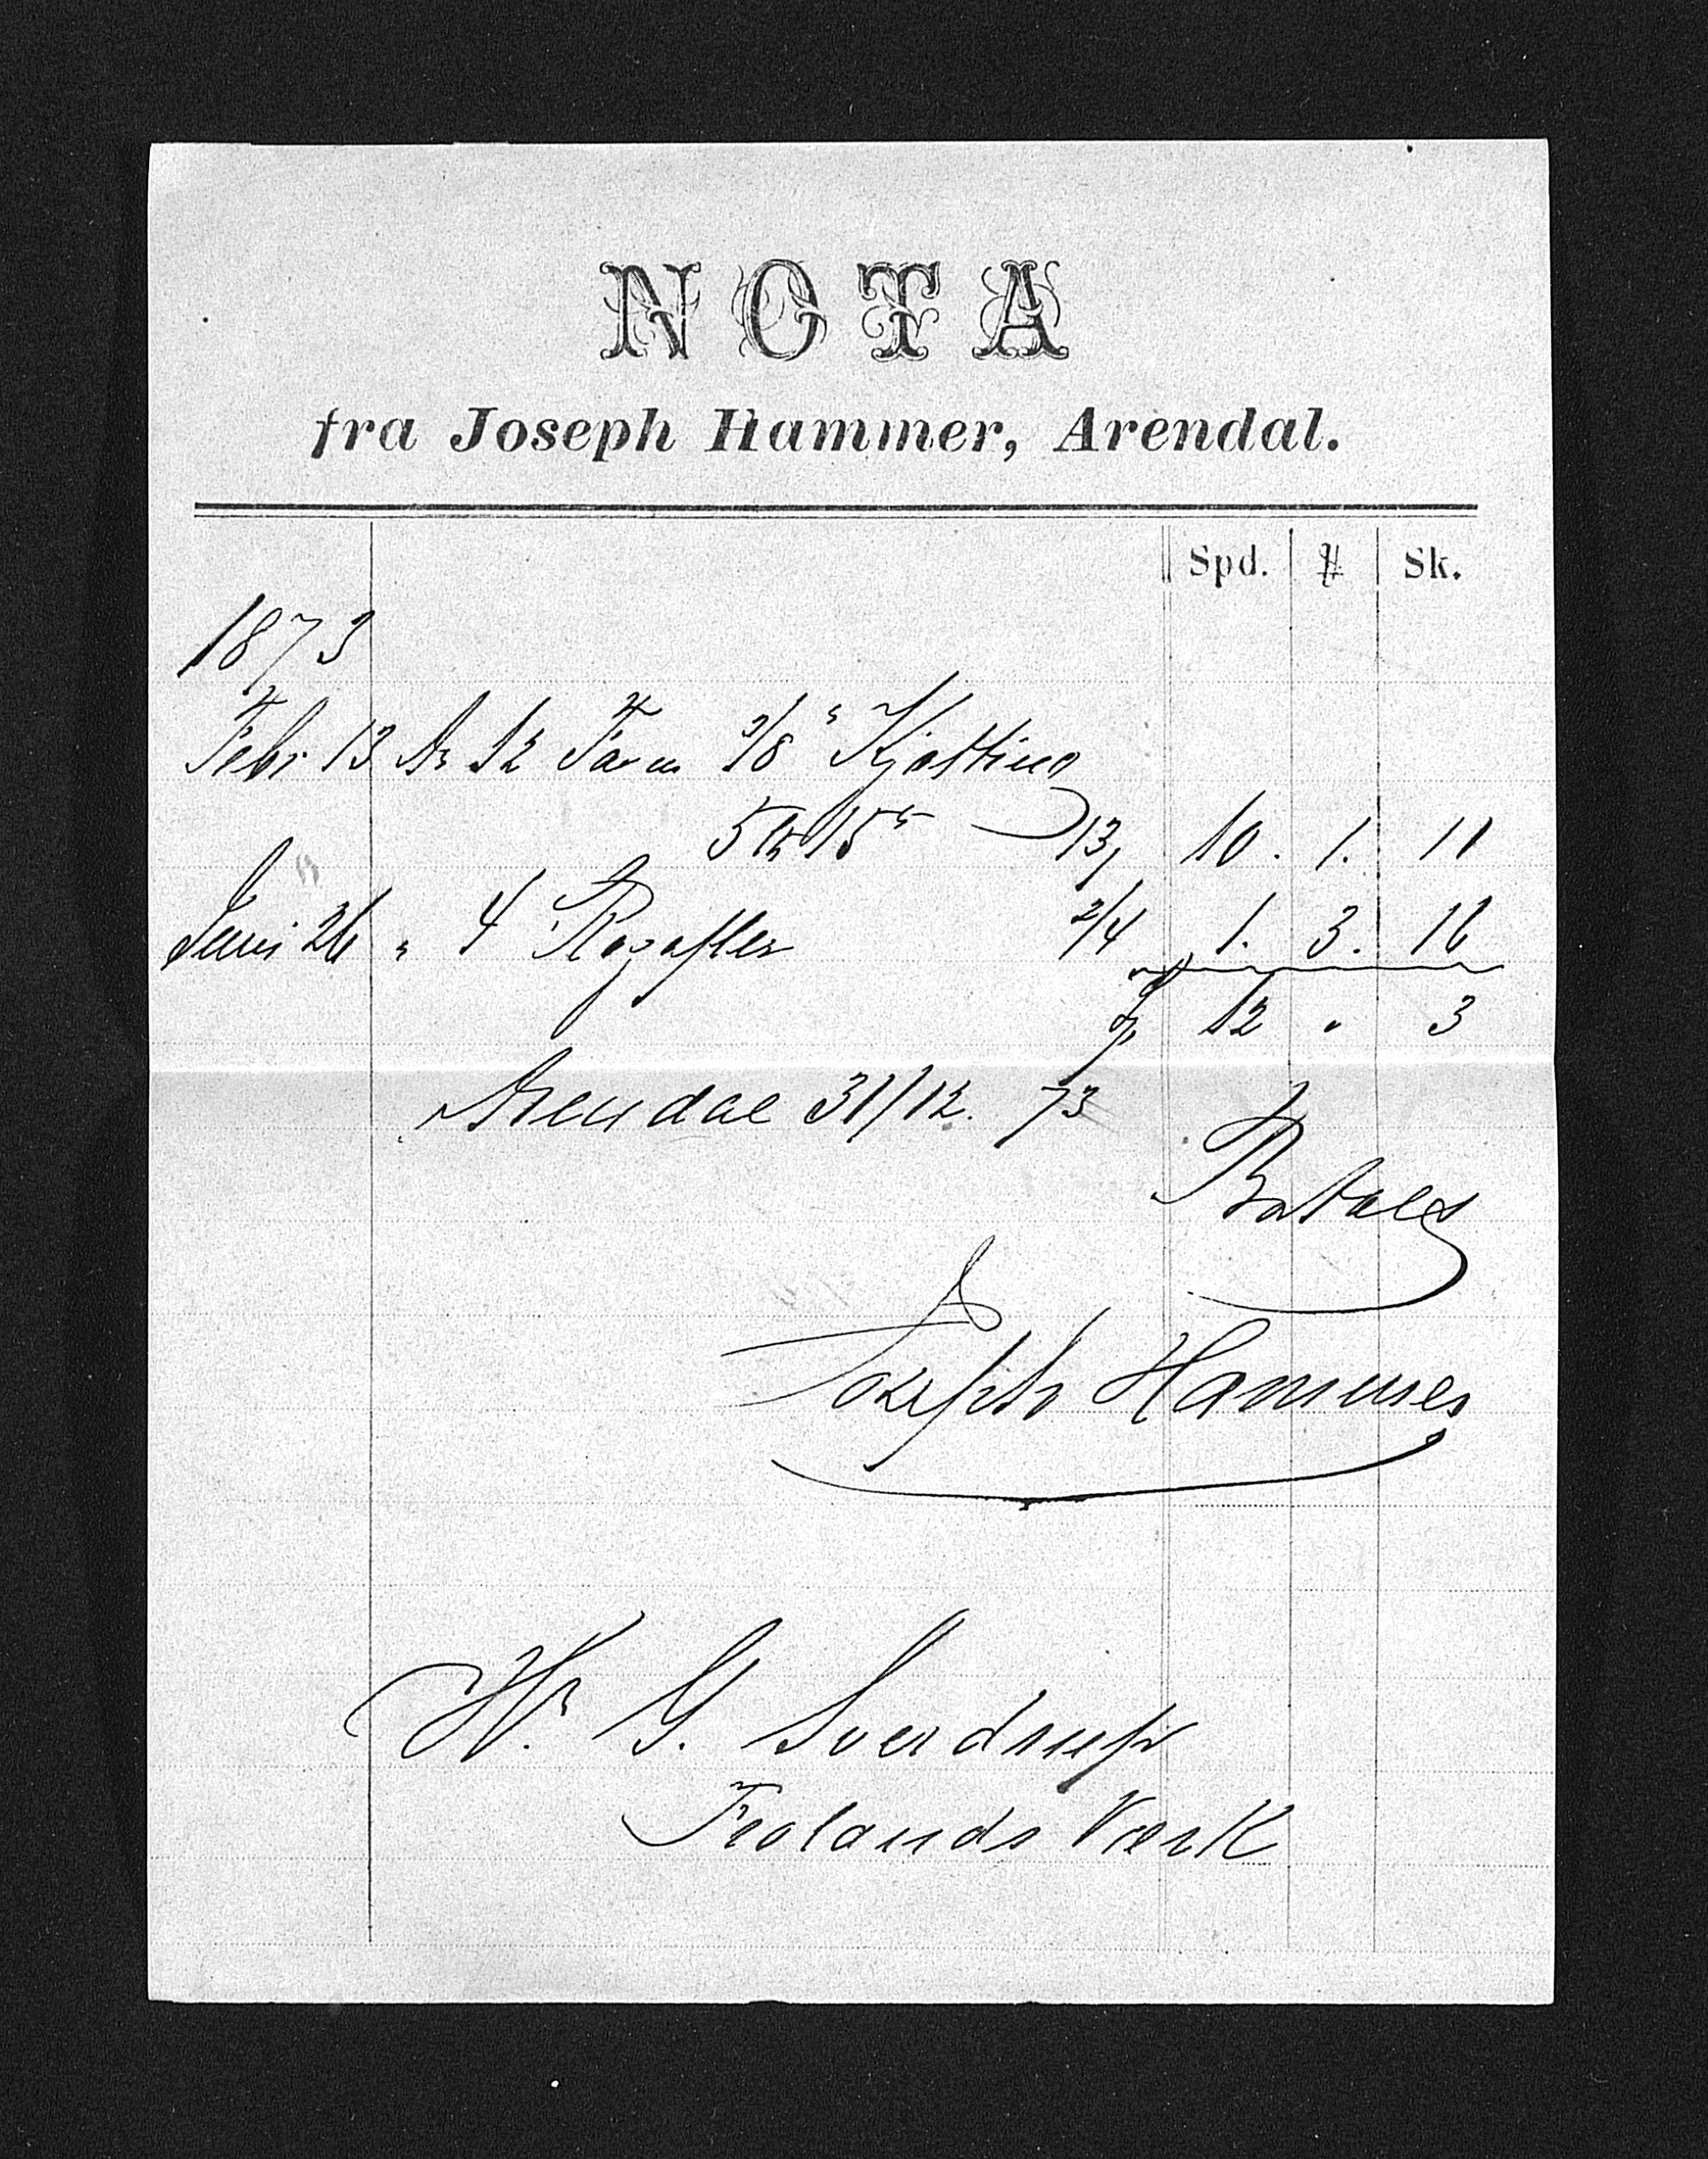 NOTA
fra Joseph Hammer, Arendal.
Spd. Sk.
1873
Febr 13 An 12 Favn 3/8" Kjætting
13, 10. 1. 11
Juni 26 " 4 2/4 1. 3. 16
12 " 3
Arendal 31/12. 73
Betalt
Joseph Hammer
Hr. G. Sverdrup
Frolands Værk